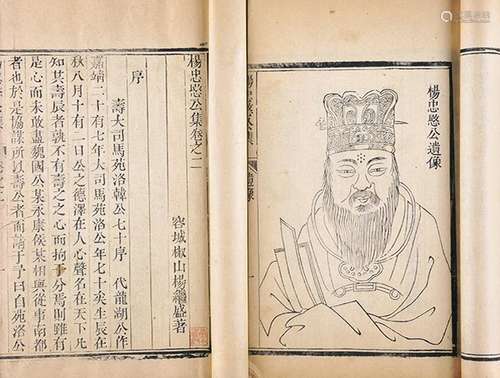 楊忠愍公集卷之二
容城椒山楊繼盛著
序
壽大司馬苑洛韓公七十序 代龍湖公作
嘉靖二十有七年大司馬苑洛公年七十矣生辰在
秋八月十有一日公之德澤在人心聲名在天下凡
知其壽辰者孰不有壽之之心而拘于分焉則雖有
是心而未敢盡魏國公某永康侯某相與從事南都
者也於是協謀所以壽公者而請于予曰自苑洛公
楊忠愍公遺像
遺像